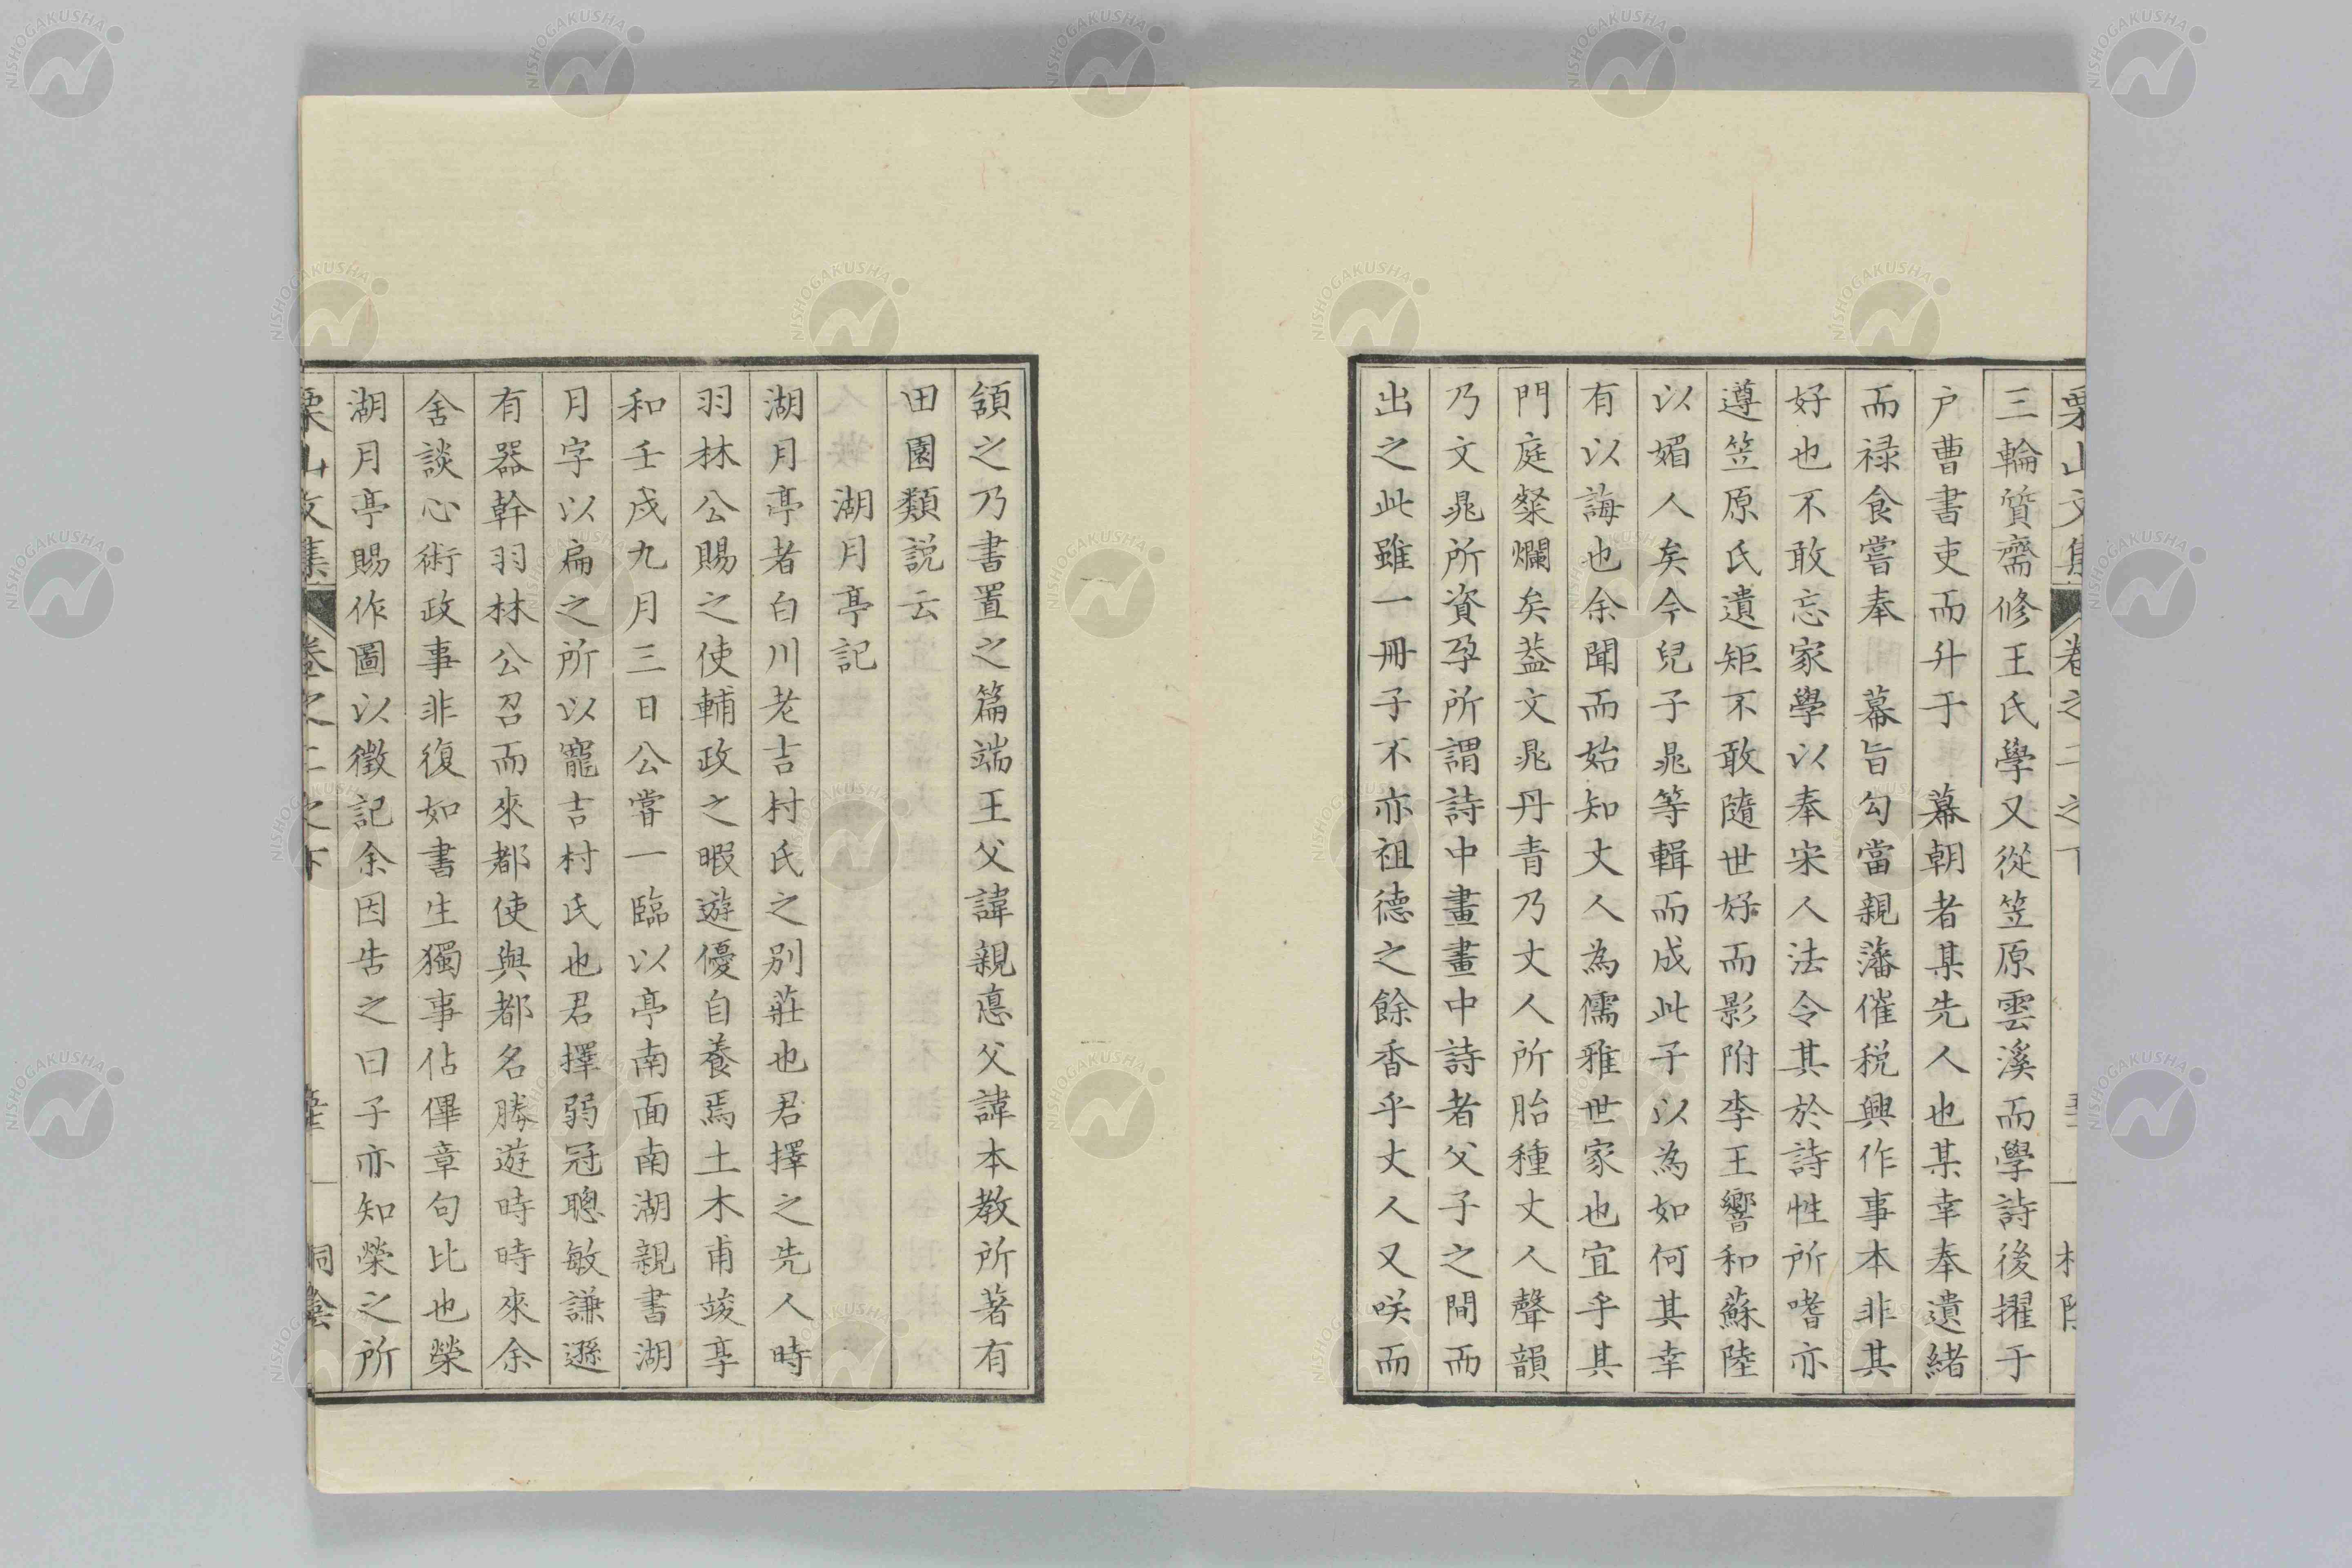 三輪質齋修王氏學又從笠原雲溪而學詩後擢于
户曹書吏而升于　幕朝者某先人也某幸奉遺緒
而禄食嘗奉　幕旨勾當親藩催税興作事本非其
好也不敢忘家學以奉宋人法令其於詩性所嗜亦
遵笠原氏遺矩不敢隨世好而影附李王響和蘇陸
以媚人矣今兒子晁等輯而成此子以為如何其幸
有以誨也余聞而始知丈人為儒雅世家也宜乎其
門庭粲爛矣葢文晁丹青乃丈人所胎種丈人聲韻
乃文晁所資孕所謂詩中畫畫中詩者父子之間而
出之此雖一冊子不亦祖德之餘香乎丈人又咲而
頷之乃書置之篇端王父諱親惪父諱本教所著有
田園類説云
湖月亭記
湖月亭者白川老吉村氏之别莊也君擇之先人時
羽林公賜之使輔政之暇遊優自養焉土木甫竣享
和壬戌九月三日公嘗一臨以亭南面南湖親書湖
月字以扁之所以寵吉村氏也君擇弱冠聰敏謙遜
有器幹羽林公召而來都使與都名勝遊時時來余
舍談心術政事非復如書生獨事佔俾章句比也榮
湖月亭賜作圖以徵記余因告之曰子亦知榮之所
栗山文集　卷之二之下